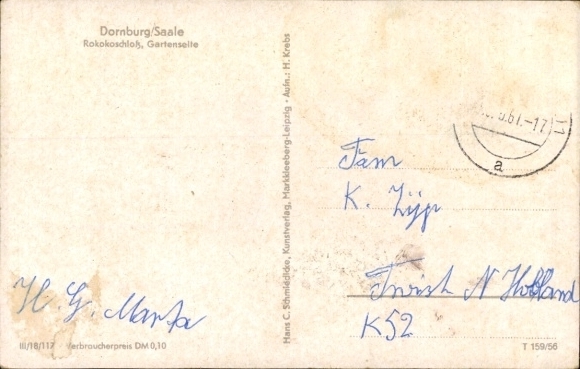 Dornburg/Saale
Rokokoschloß, Gartenseite
Hans C. Schmiedicke, Kunstverlag, Markkleeberg-Leipzig • Aufn.: H. Krebs
.61.-17
a
Fam
K. Zijp
Twisk N Holland
K52
H. G. Marta
III/18/117 Verbraucherpreis DM 0,10
T 159/56